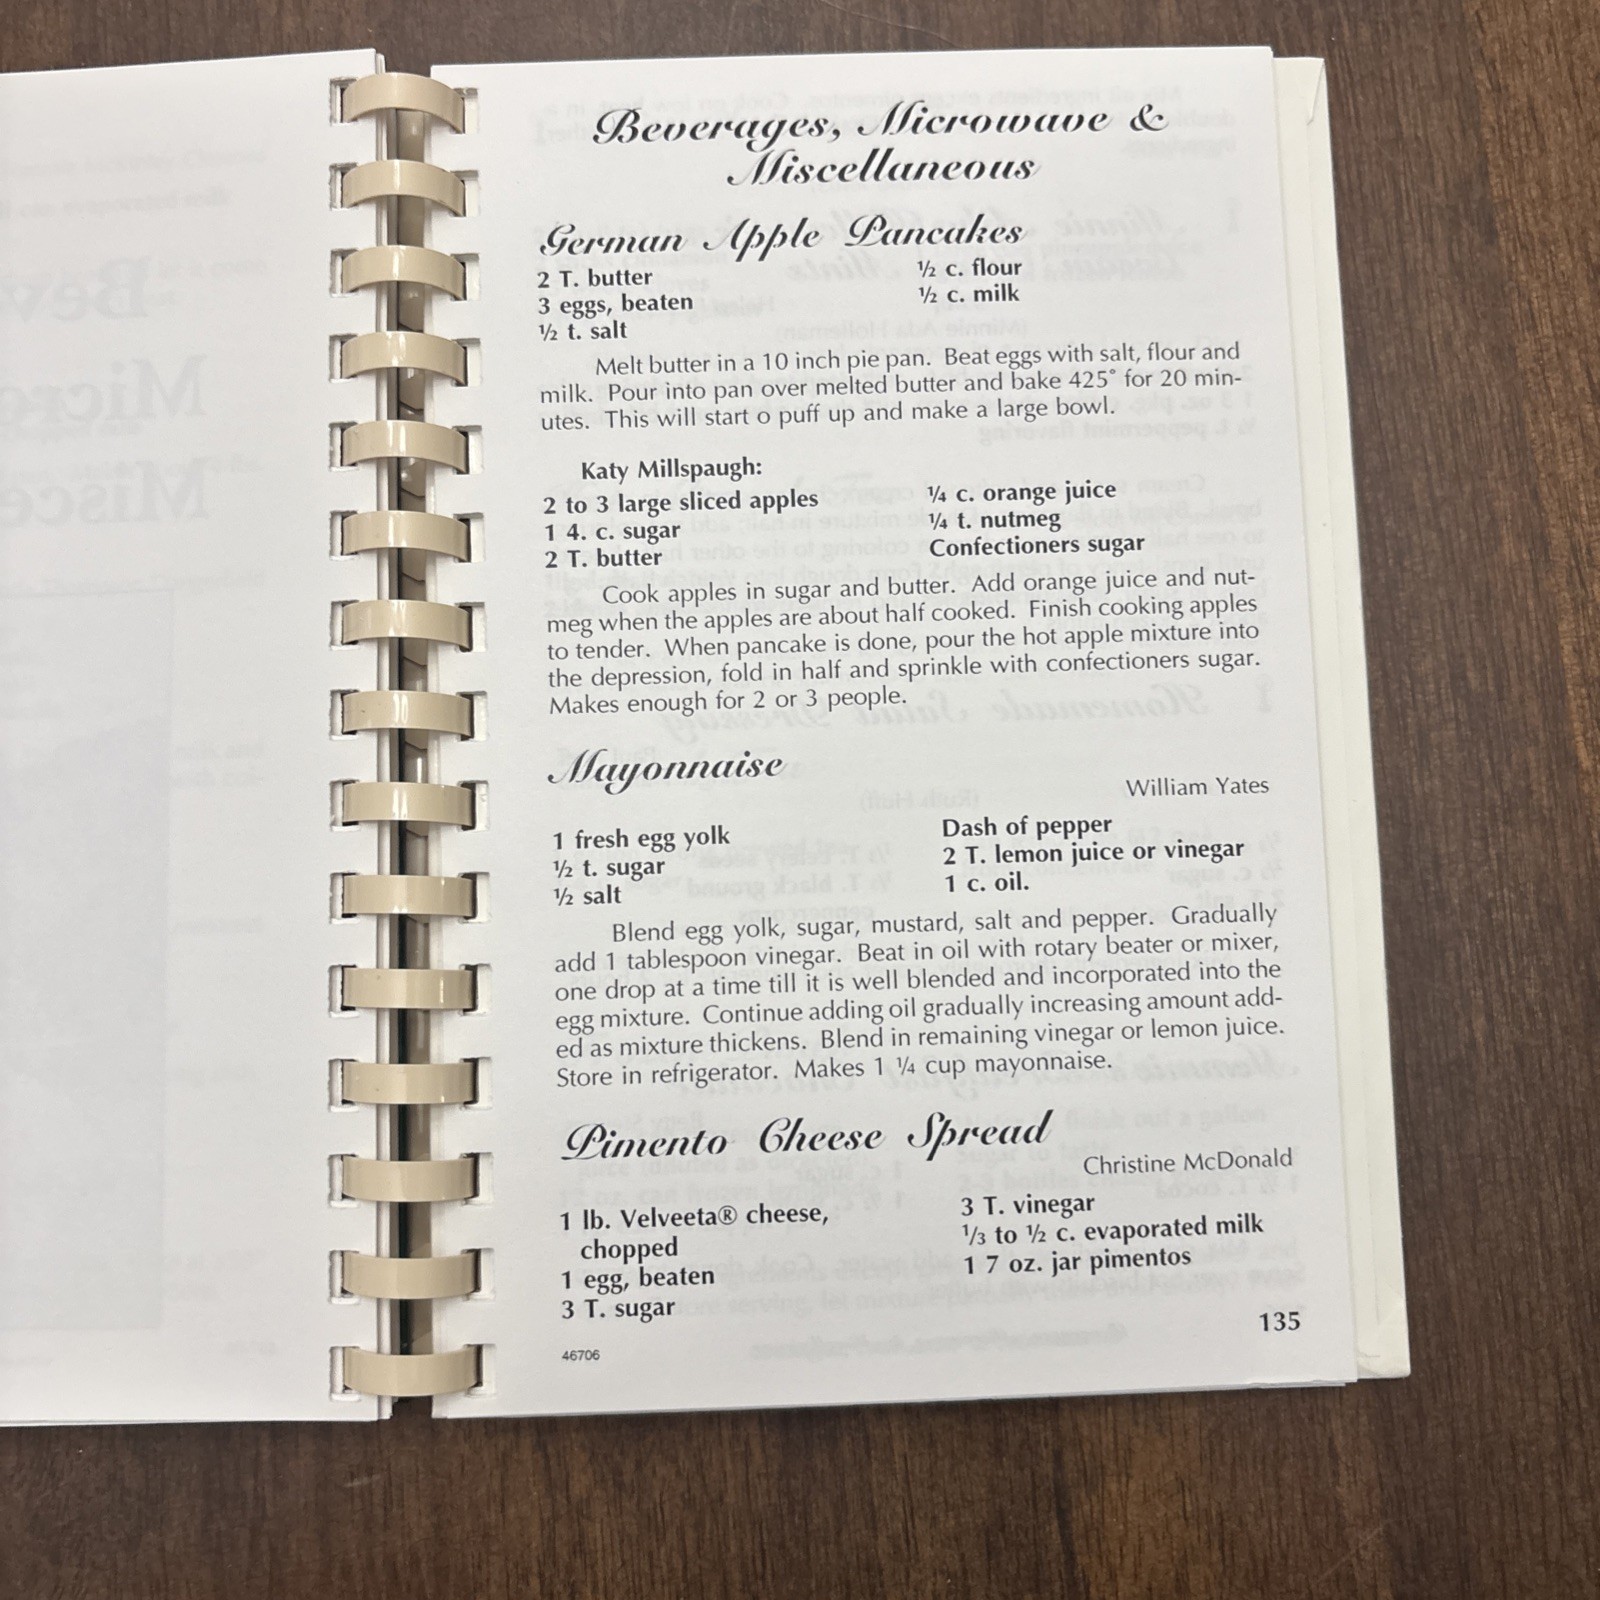 Beverages, Microwave &
Miscellaneous
German Apple Pancakes
2 T. butter
3 eggs, beaten
½ t. salt
½ c. flour
½ c. milk
Melt butter in a 10 inch pie pan. Beat eggs with salt, flour and
milk. Pour into pan over melted butter and bake 425° for 20 min-
utes. This will start o puff up and make a large bowl.
Katy Millspaugh:
2 to 3 large sliced apples
1 4. c. sugar
2 T. butter
¼ c. orange juice
¼ t. nutmeg
Confectioners sugar
Cook apples in sugar and butter. Add orange juice and nut-
meg when the apples are about half cooked. Finish cooking apples
to tender. When pancake is done, pour the hot apple mixture into
the depression, fold in half and sprinkle with confectioners sugar.
Makes enough for 2 or 3 people.
Mayonnaise
William Yates
1 fresh egg yolk
½ t. sugar
½ salt
Dash of pepper
2 T. lemon juice or vinegar
1 c. oil.
Blend egg yolk, sugar, mustard, salt and pepper. Gradually
add 1 tablespoon vinegar. Beat in oil with rotary beater or mixer,
one drop at a time till it is well blended and incorporated into the
egg mixture. Continue adding oil gradually increasing amount add-
ed as mixture thickens. Blend in remaining vinegar or lemon juice.
Store in refrigerator. Makes 1 ¼ cup mayonnaise.
Pimento Cheese Spread
Christine McDonald
1 lb. Velveeta® cheese,
chopped
1 egg, beaten
3 T. sugar
3 T. vinegar
⅓ to ½ c. evaporated milk
1 7 oz. jar pimentos
135
46706